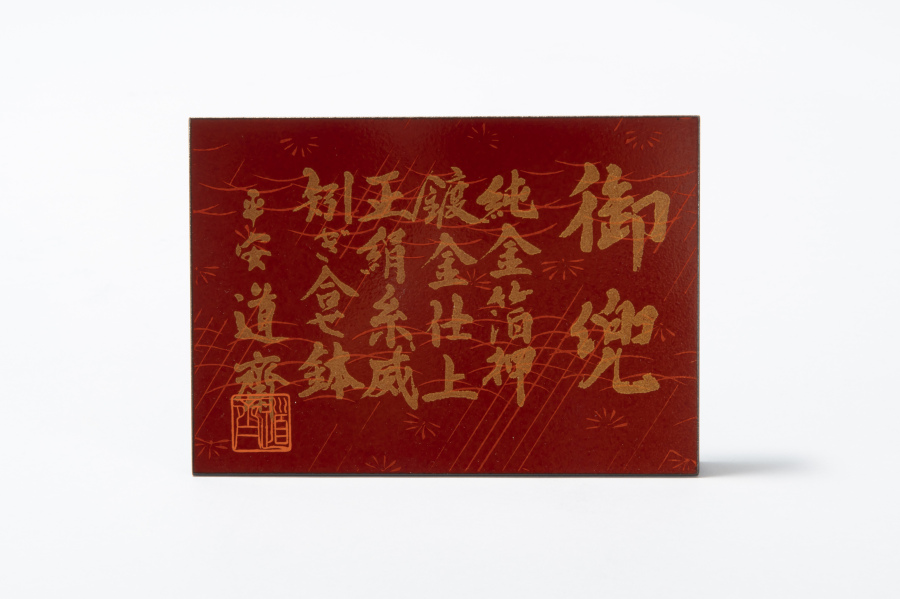 御兜
純金箔押
鍍金仕上
正絹糸威
矧ぎ合せ鉢
平安道齊
道齊